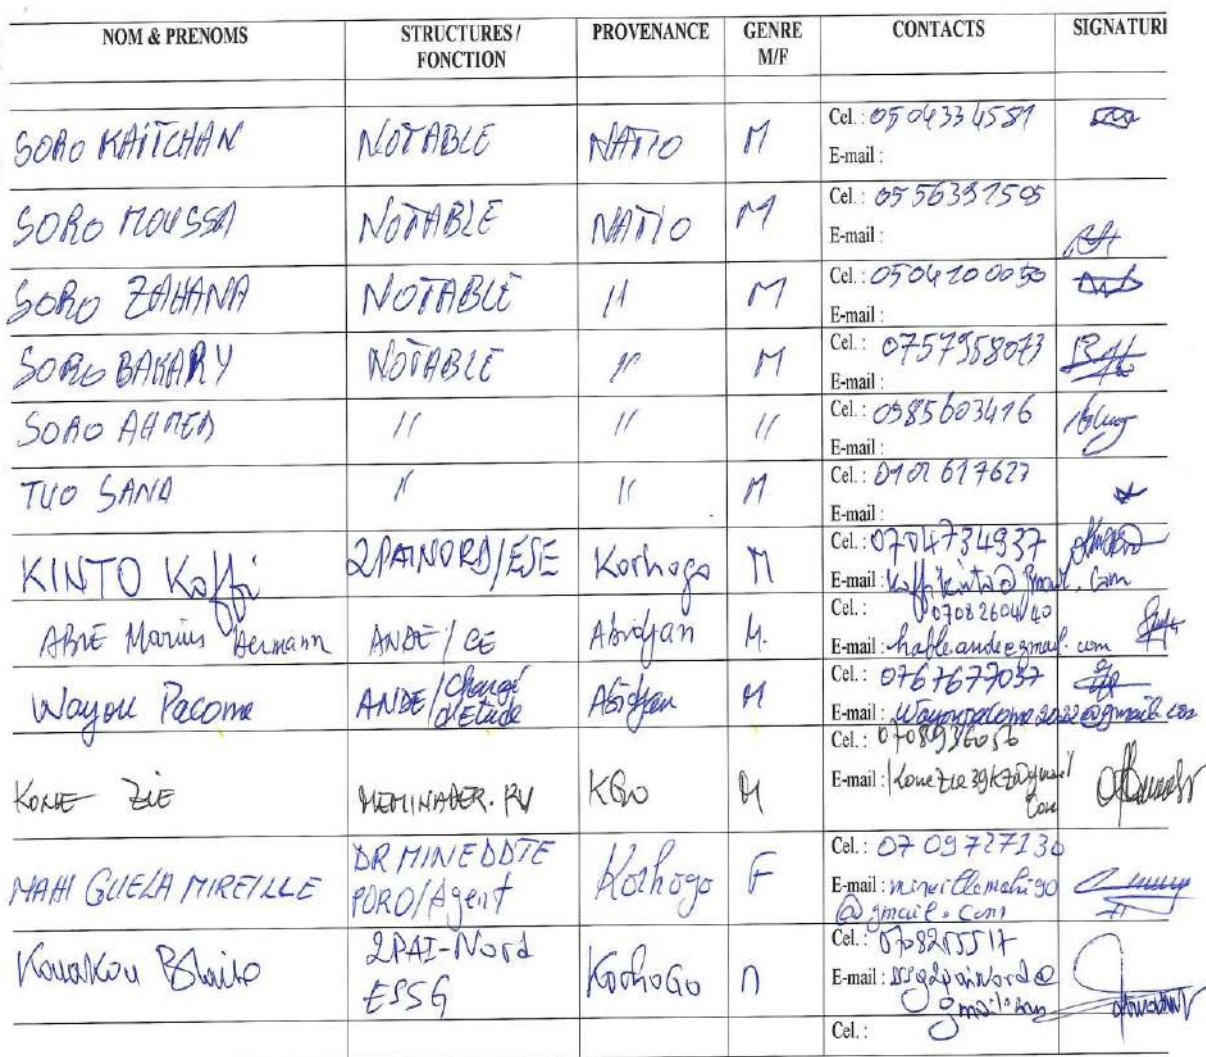 NOM & PRENOMS STRUCTURES / FONCTION PROVENANCE GENRE M/F CONTACTS SIGNATURE
SORO KAITCHAN NOTABLE NATIO M Cel. : 0504334581
E-mail :
SORO MOUSSA NOTABLE NATIO M Cel. : 0556391505
E-mail :
SORO ZAHANA NOTABLE " M Cel. : 0504100050
E-mail :
SORO BAKARY NOTABLE " M Cel. : 0757958073
E-mail :
SORO AHMED " " " Cel. : 0585603416
E-mail :
TUO SANA " " M Cel. : 0101617627
E-mail :
KINTO Koffi 2PAINORD/ESE Korhogo M Cel. : 0704734937
E-mail : koffikinto@gmail.com
ABLE Marius Hermann ANDE/CE Abidjan M. Cel. : 0708260440
E-mail : hable.ande@gmail.com
Wayou Pacome ANDE/Chargé d'Etude Abidjan M Cel. : 0767677037
E-mail : Wayoupacome2022@gmail.com
KONE ZIE KGO M Cel. : 0708936056
E-mail : Konezie39kz@gmail
Com
MAHI GUELA MIREILLE DR MINEDDTE PORO/Agent Korhogo F Cel. : 0709727130
E-mail : mireillemahigo
@gmail.com
Kouakou Blaise 2PAI-Nord ESSG KorhoGo M Cel. : 0708255517
E-mail : essg2painord@
gmail.com
Cel. :